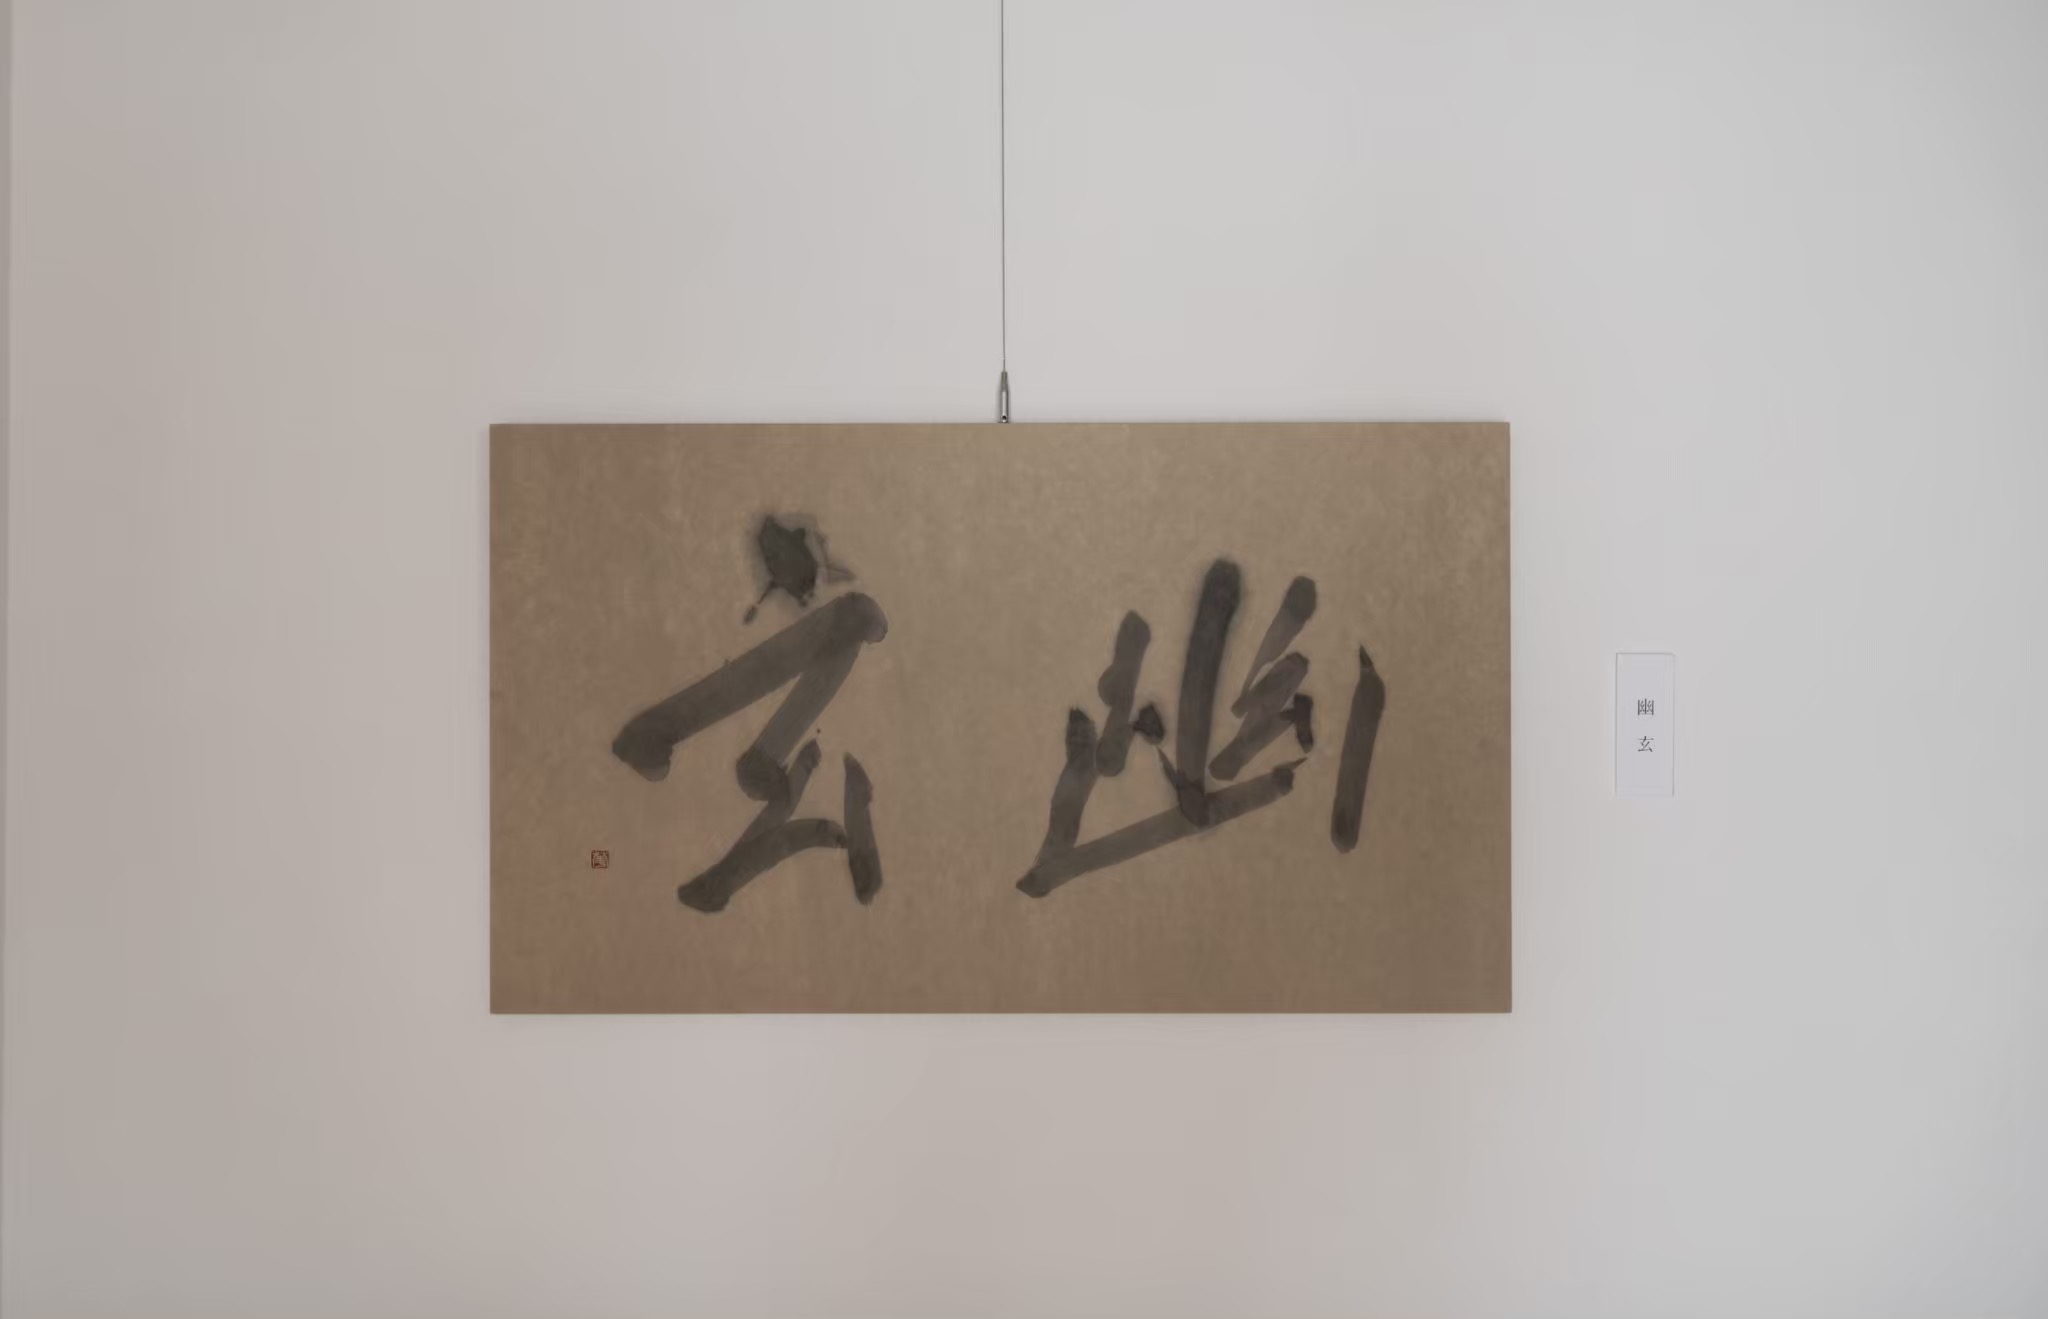 幽玄
幽玄